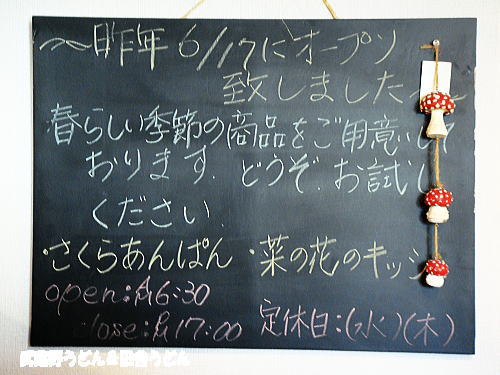 〜昨年6/17にオープン
致しました〜
春らしい季節の商品をご用意して
おります。どうぞ、お試し
ください。
・さくらあんぱん ・菜の花のキッシ
open:AM6:30
close:PM17:00 定休日:(水)(木)
うどん&田舎うどん